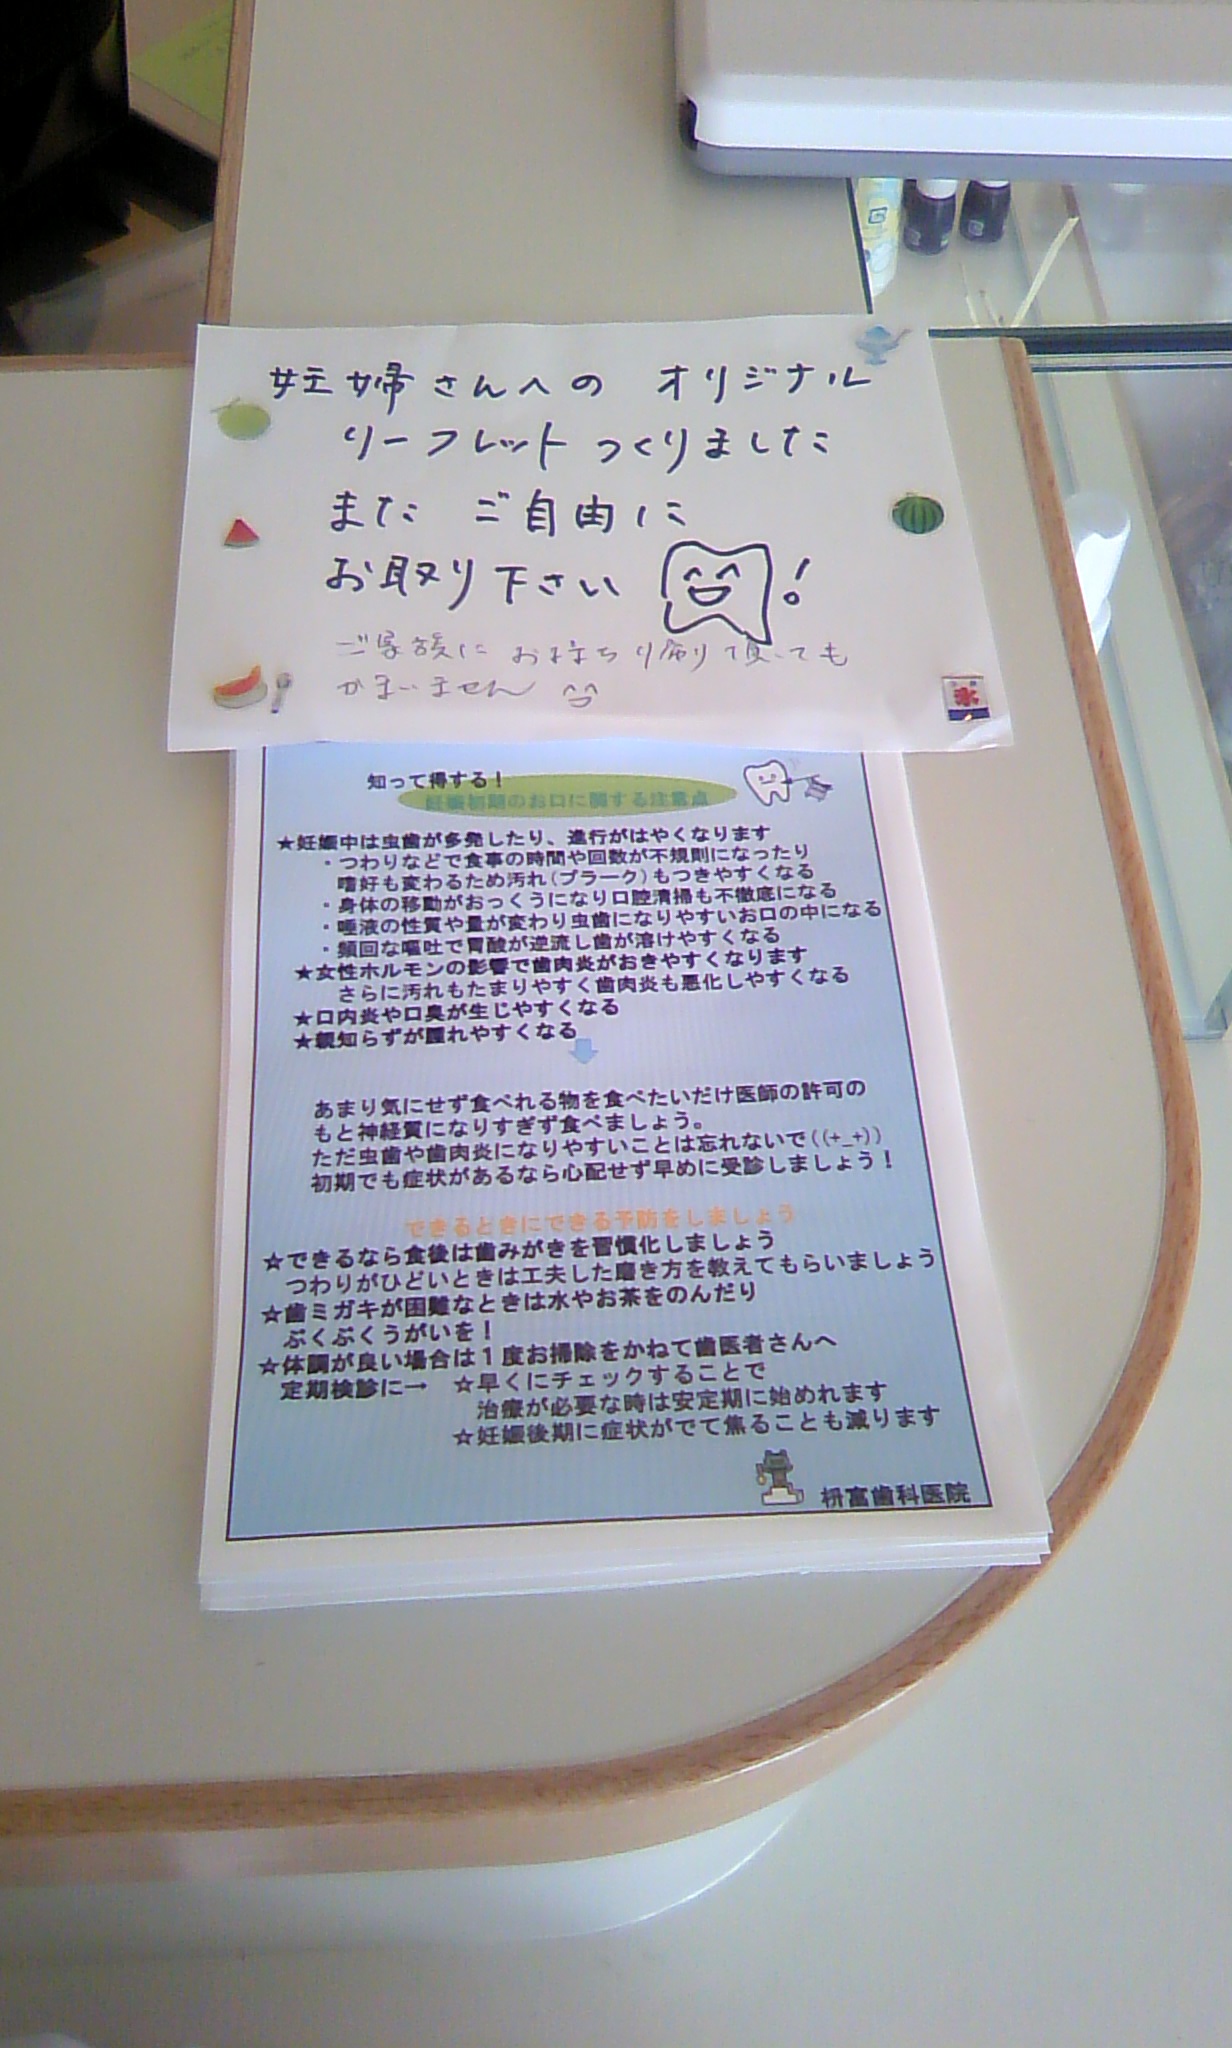 妊婦さんへの オリジナル
リーフレット つくりました
また ご自由に
お取り下さい !
ご家族に お持ち帰り頂いても
かまいません
氷
知って得する!
妊娠初期のお口に関する注意点
★妊娠中は虫歯が多発したり、進行がはやくなります
・つわりなどで食事の時間や回数が不規則になったり
嗜好も変わるため汚れ(プラーク)もつきやすくなる
・身体の移動がおっくうになり口腔清掃も不徹底になる
・唾液の性質や量が変わり虫歯になりやすいお口の中になる
・頻回な嘔吐で胃酸が逆流し歯が溶けやすくなる
★女性ホルモンの影響で歯肉炎がおきやすくなります
さらに汚れもたまりやすく歯肉炎も悪化しやすくなる
★口内炎や口臭が生じやすくなる
★親知らずが腫れやすくなる
あまり気にせず食べれる物を食べたいだけ医師の許可の
もと神経質になりすぎず食べましょう。
ただ虫歯や歯肉炎になりやすいことは忘れないで((+_+))
初期でも症状があるなら心配せず早めに受診しましょう!
できるときにできる予防をしましょう
☆できるなら食後は歯みがきを習慣化しましょう
つわりがひどいときは工夫した磨き方を教えてもらいましょう
☆歯ミガキが困難なときは水やお茶をのんだり
ぶくぶくうがいを!
☆体調が良い場合は1度お掃除をかねて歯医者さんへ
定期検診に→ ☆早くにチェックすることで
治療が必要な時は安定期に始めれます
☆妊娠後期に症状がでて焦ることも減ります
枡富歯科医院